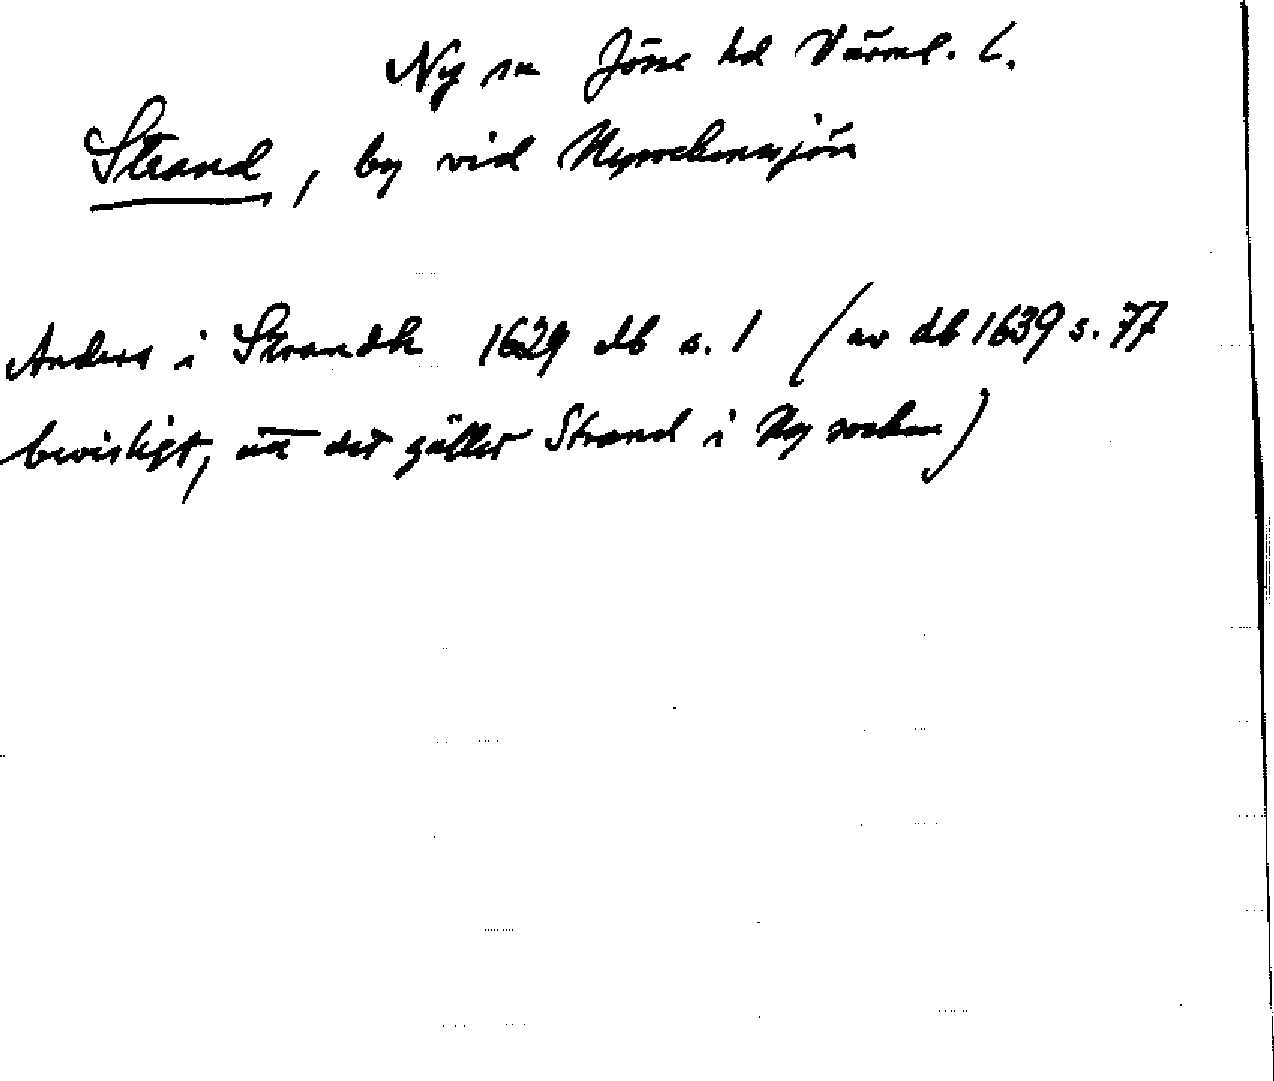 Ny sn Jösse hd Värml. l.
Strand, by vid Nysockensjön
Anders i Strandh 1629 db s. 1 (av db 1639 s. 77
bevisligt, att det gäller Strand i Ny socken)